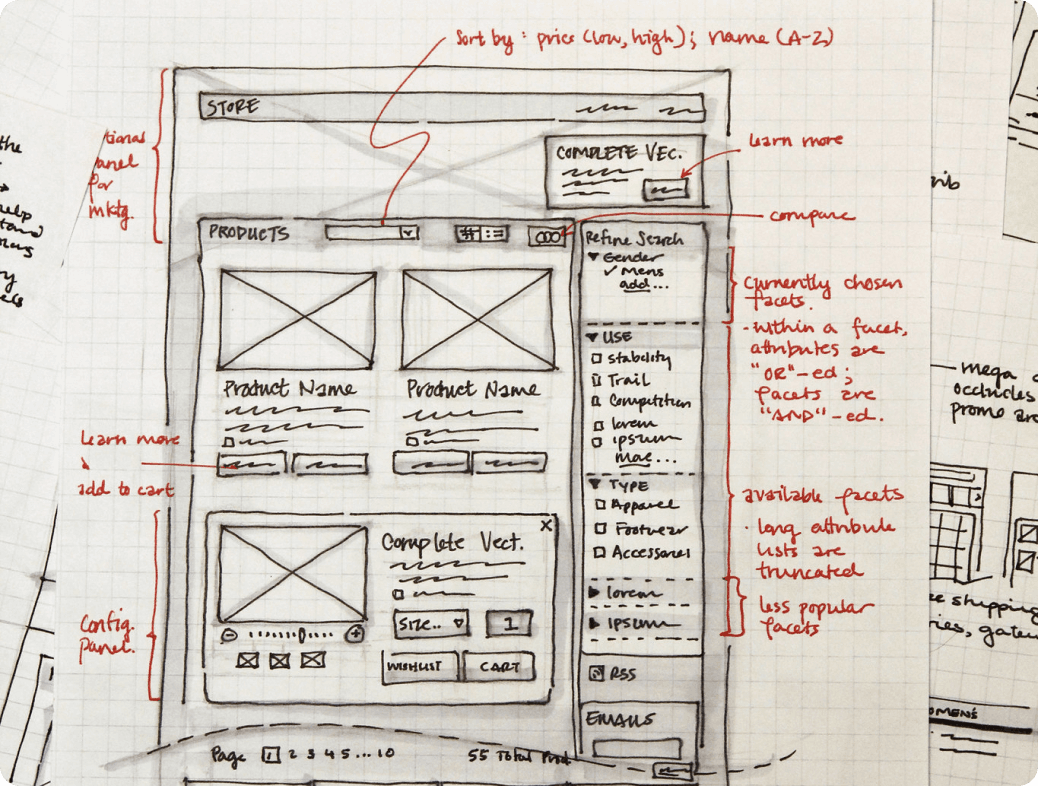 Sort by : price (low, high); name (A-Z)
STORE
COMPLETE VEC.
learn more
compare
tional
panel
for
mktg.
PRODUCTS
Refine Search
Gender
✓ Mens
add...
currently chosen
facets.
- within a facet,
attributes are
"OR"-ed;
facets are
"AND"-ed.
USE
Stability
Trail
Competition
lorem
ipsum
more...
Product Name
Product Name
learn more
&
add to cart
TYPE
Apparel
Footwear
Accessories
available facets
· long attribute
lists are
truncated
lorem
ipsum
less popular
facets
Config.
Panel.
Complete Vect.
X
Size..
1
WISHLIST
CART
RSS
EMAILS
Page 1 2 3 4 5 ... 10
55 Total Prod
the
help
mega
occludes
promo are
shipping
OMENS